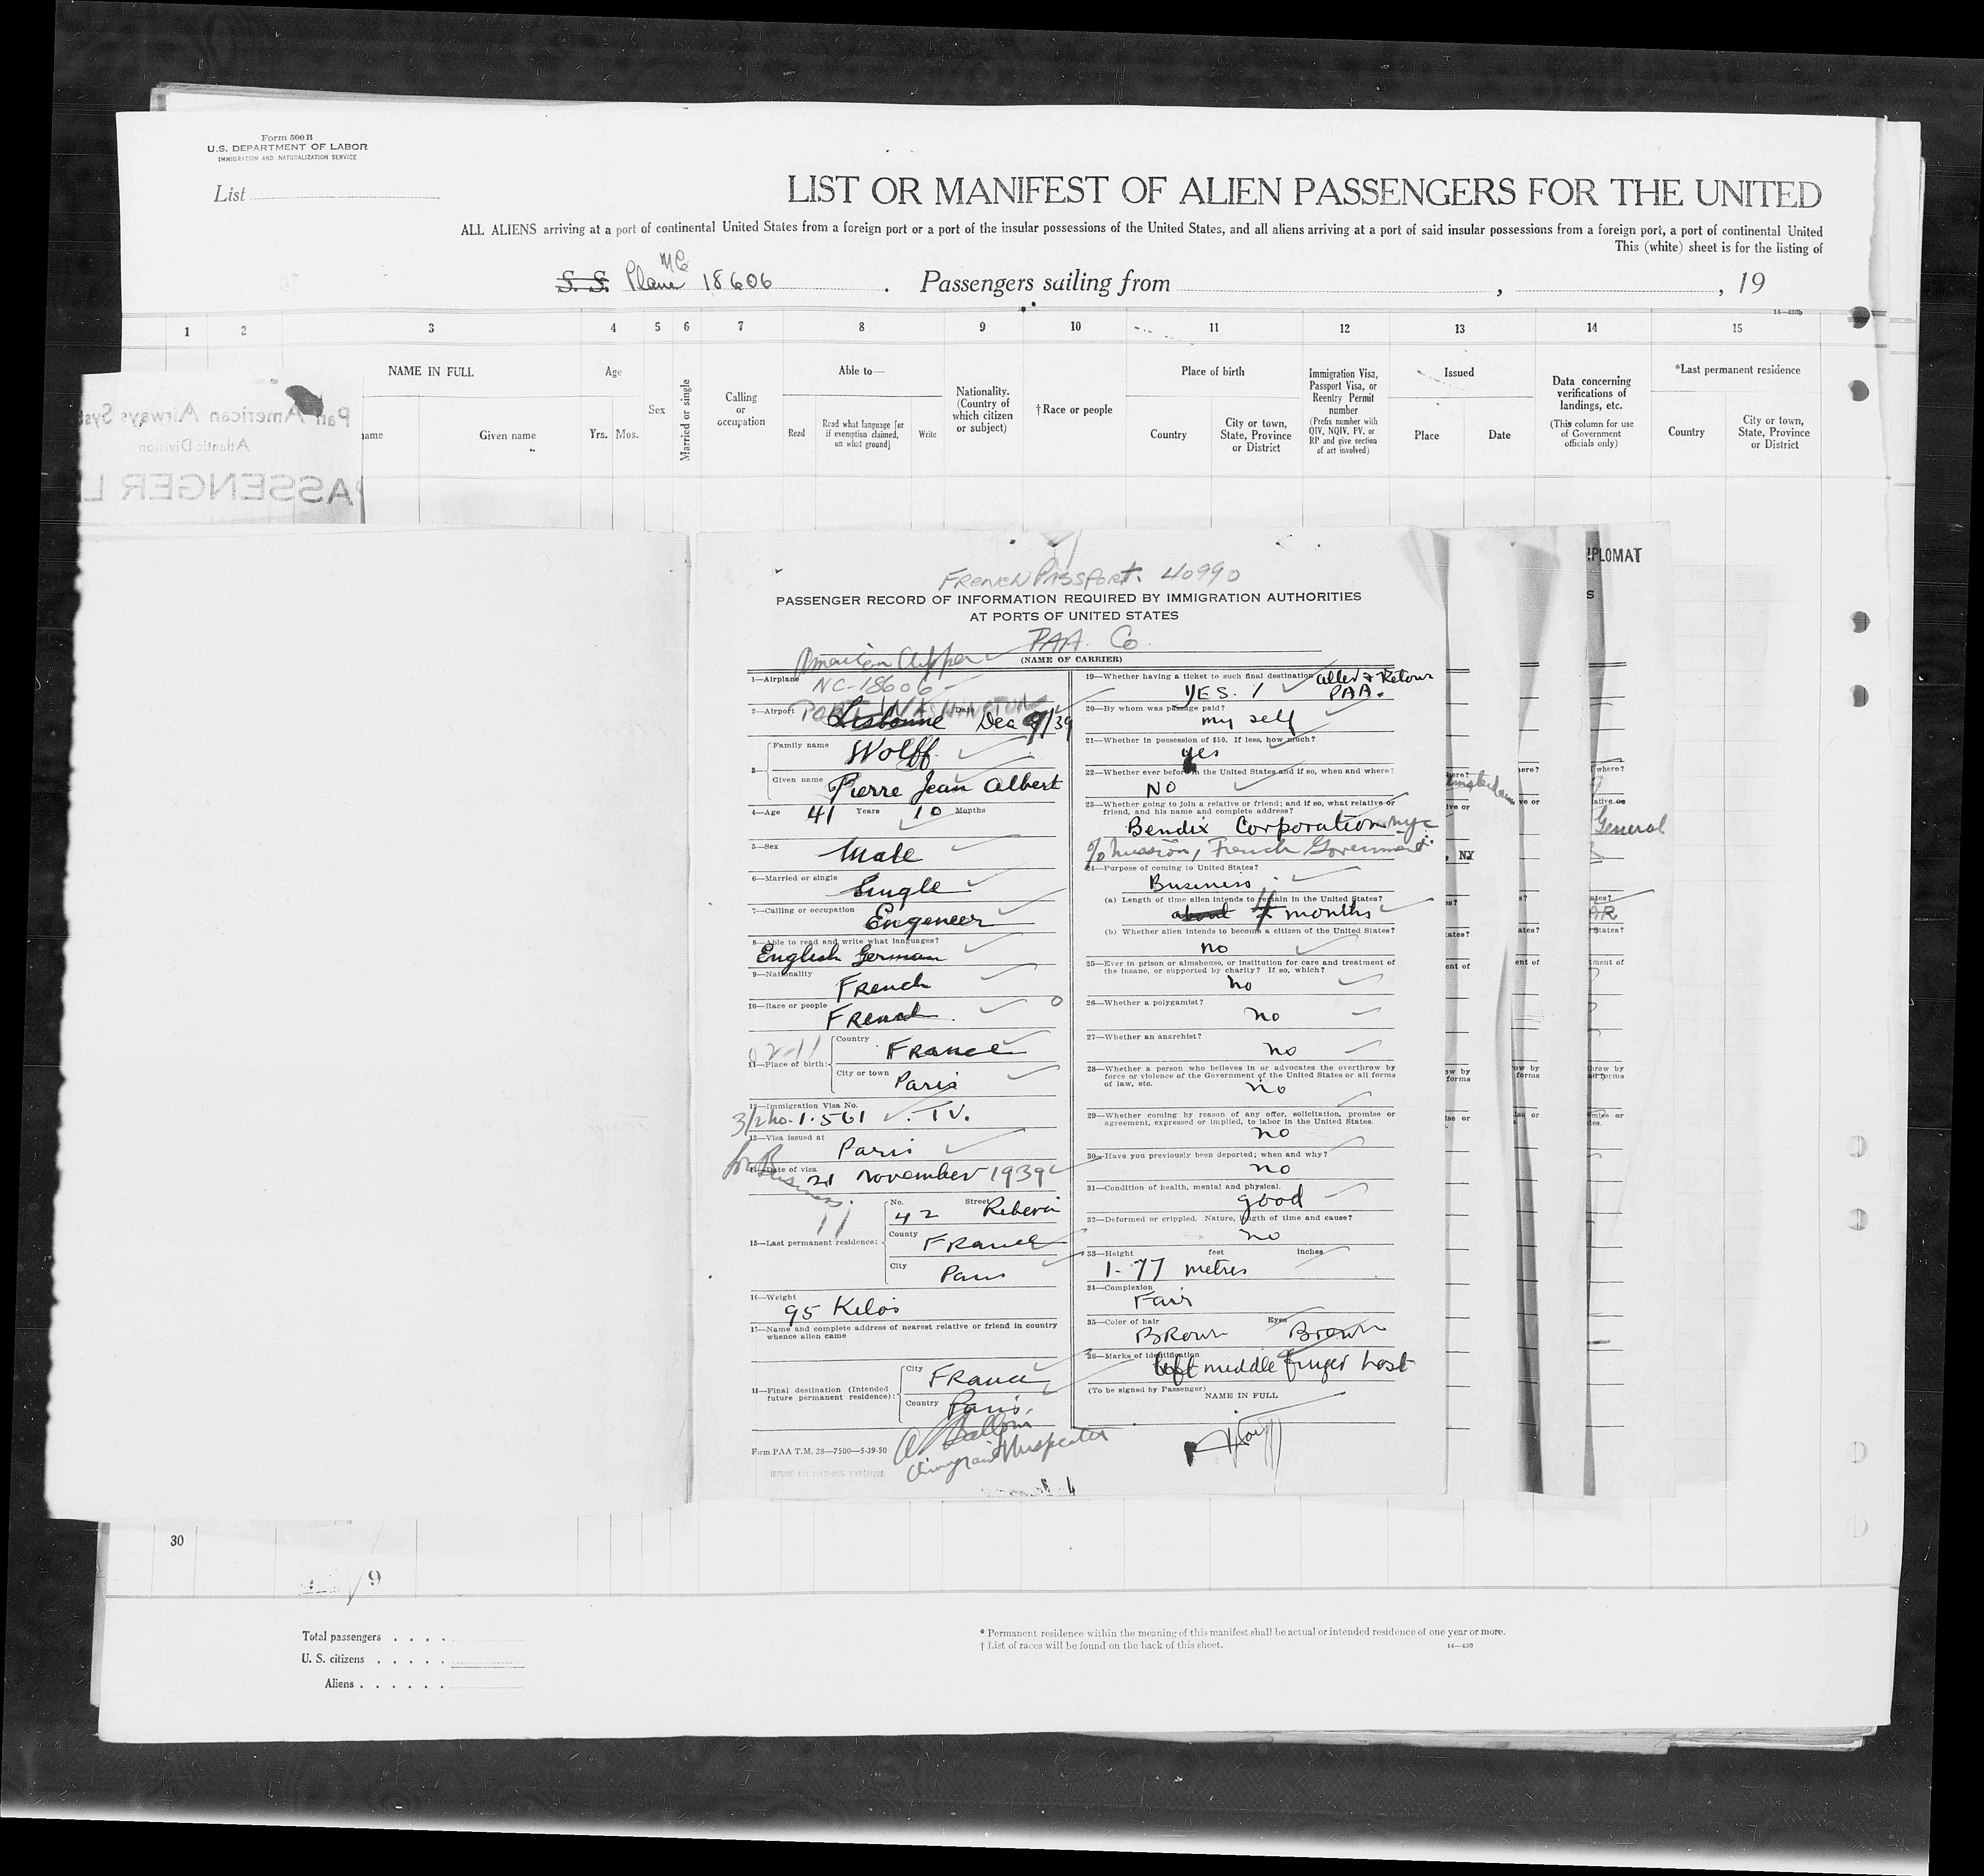 Form 500 B
U.S. DEPARTMENT OF LABOR
IMMIGRATION AND NATURALIZATION SERVICE
List
LIST OR MANIFEST OF ALIEN PASSENGERS FOR THE UNITED
ALL ALIENS arriving at a port of continental United States from a foreign port or a port of the insular possessions of the United States, and all aliens arriving at a port of said insular possessions from a foreign port, a port of continental United
This (white) sheet is for the listing of
NC
S. S. Plane 18606 . Passengers sailing from , , 19
14—430b
1 2 3 4 5 6 7 8 9 10 11 12 13 14 15
NAME IN FULL
ame
Given name
Age
Yrs. Mos.
Sex
Married or single
Calling
or
occupation
Able to—
Read
Read what language [or
if exemption claimed,
on what ground]
Write
Nationality.
(Country of
which citizen
or subject)
† Race or people
Place of birth
Country
City or town,
State, Province
or District
Immigration Visa,
Passport Visa, or
Reentry Permit
number
(Prefix number with
QIV, NQIV, PV, or
RP and give section
of act involved)
Issued
Place
Date
Data concerning
verifications of
landings, etc.
(This column for use
of Government
officials only)
*Last permanent residence
Country
City or town,
State, Province
or District
Pan American Airways Syst
Atlantic Division
PASSENGER L
FRENCH PASSPORT. 40990
PASSENGER RECORD OF INFORMATION REQUIRED BY IMMIGRATION AUTHORITIES
AT PORTS OF UNITED STATES
American Clipper PAA. Co.
(NAME OF CARRIER)
1—Airplane NC-18606
2—Airport PORT WASHINGTON Lisbonne Date Dec 9/39
3— Family name Wolff
Given name Pierre Jean Albert
4—Age 41 Years 10 Months
5—Sex Male
6—Married or single Single
7—Calling or occupation Engeneer
8—Able to read and write what languages?
English German
9—Nationality French
10—Race or people French
11—Place of birth: Country France
City or town Paris
12—Immigration Visa No.
3/2 no. 1.561 T V.
13—Visa issued at Paris
14—Date of visa 21 November 1939
for Business.
15—Last permanent residence: No. 42 Street Ribera
County France
City Paris
16—Weight 95 Kilos
17—Name and complete address of nearest relative or friend in country
whence alien came
18—Final destination (Intended
future permanent residence): City France
Country Paris.
Immigrant Inspector
Form PAA T.M. 28—7500—5-39-50
IMPRIMÉ AUX ETATS-UNIS D'AMÉRIQUE
19—Whether having a ticket to such final destination aller & Retour
YES. PAA.
20—By whom was passage paid?
my self
21—Whether in possession of $50. If less, how much?
yes
22—Whether ever before in the United States and if so, when and where?
NO
23—Whether going to join a relative or friend; and if so, what relative or
friend, and his name and complete address?
Bendix Corporation nyc
c/o mission, French Government.
24—Purpose of coming to United States?
Business
(a) Length of time alien intends to remain in the United States?
about 4 months
(b) Whether alien intends to become a citizen of the United States?
no
25—Ever in prison or almshouse, or institution for care and treatment of
the insane, or supported by charity? If so, which?
no
26—Whether a polygamist?
no
27—Whether an anarchist?
no
28—Whether a person who believes in or advocates the overthrow by
force or violence of the Government of the United States or all forms
of law, etc.
no
29—Whether coming by reason of any offer, solicitation, promise or
agreement, expressed or implied, to labor in the United States.
no
30—Have you previously been deported; when and why?
no
31—Condition of health, mental and physical.
good
32—Deformed or crippled. Nature, length of time and cause?
no
33—Height feet inches
1.77 metres
34—Complexion
Fair
35—Color of hair Brown Eyes Brown
36—Marks of identification
left middle finger lost
(To be signed by Passenger)
NAME IN FULL
IPLOMAT
General
, NY
30
9
Total passengers . . . .
U. S. citizens . . . . .
Aliens . . . . . .
* Permanent residence within the meaning of this manifest shall be actual or intended residence of one year or more.
† List of races will be found on the back of this sheet.
14—430